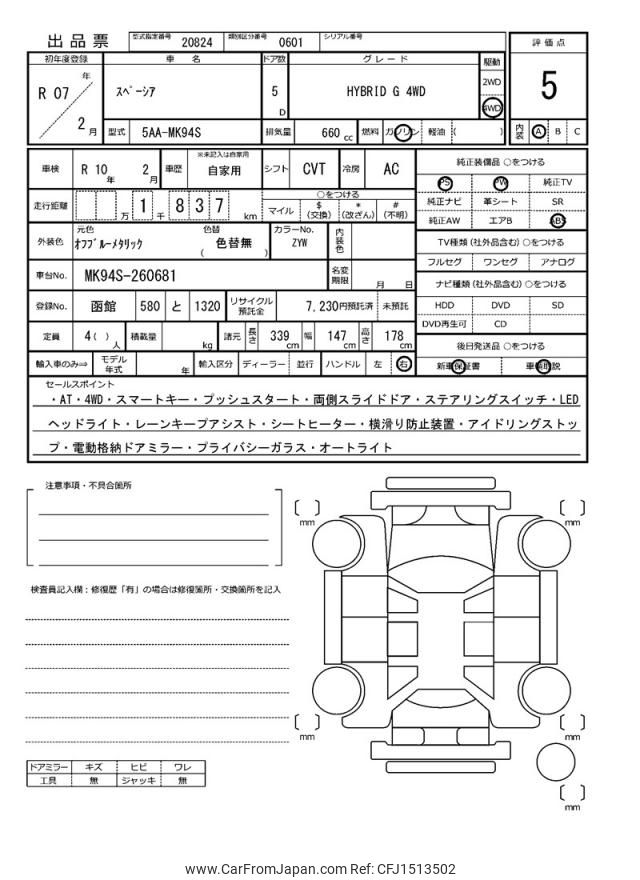 出品票 型式指定番号 20824 類別区分番号 0601 シリアル番号
評価点
5
内装 A B C
初年度登録 車名 ドア数 グレード 駆動
R 07 年 2 月 スペーシア 5 D HYBRID G 4WD 2WD 4WD
型式 5AA-MK94S 排気量 660 cc 燃料 ガソリン 軽油 ( )
車検 R 10 年 2 月 車歴 ※未記入は自家用 自家用 シフト CVT 冷房 AC
走行距離 万 1 千 8 3 7 km ○をつける マイル $(交換) *(改ざん) #(不明)
外装色 元色 オフブルーメタリック 色替 ( 色替無 ) カラーNo. ZYW 内装色
車台No. MK94S-260681 名変期限 月 日
登録No. 函館 580 と 1320 リサイクル預託金 7,230円預託済 未預託
定員 4( ) 人 積載量 kg 諸元 長さ 339 cm 幅 147 cm 高さ 178 cm
輸入車のみ⇒ モデル年式 年 輸入区分 ディーラー 並行 ハンドル 左 右
純正装備品 ○をつける
PS PW 純正TV
純正ナビ 革シート SR
純正AW エアB ABS
TV種類 (社外品含む) ○をつける
フルセグ ワンセグ アナログ
ナビ種類 (社外品含む) ○をつける
HDD DVD SD
DVD再生可 CD
後日発送品 ○をつける
新車保証書 車輌取説
セールスポイント
・AT・4WD・スマートキー・プッシュスタート・両側スライドドア・ステアリングスイッチ・LED
ヘッドライト・レーンキープアシスト・シートヒーター・横滑り防止装置・アイドリングストッ
プ・電動格納ドアミラー・プライバシーガラス・オートライト
注意事項・不具合箇所
検査員記入欄：修復歴「有」の場合は修復箇所・交換箇所を記入
ドアミラー キズ ヒビ ワレ
工具 無 ジャッキ 無
[ ] mm
[ ] mm
[ ] mm
[ ] mm
[ ] mm
www.CarFromJapan.com Ref: CFJ1513502